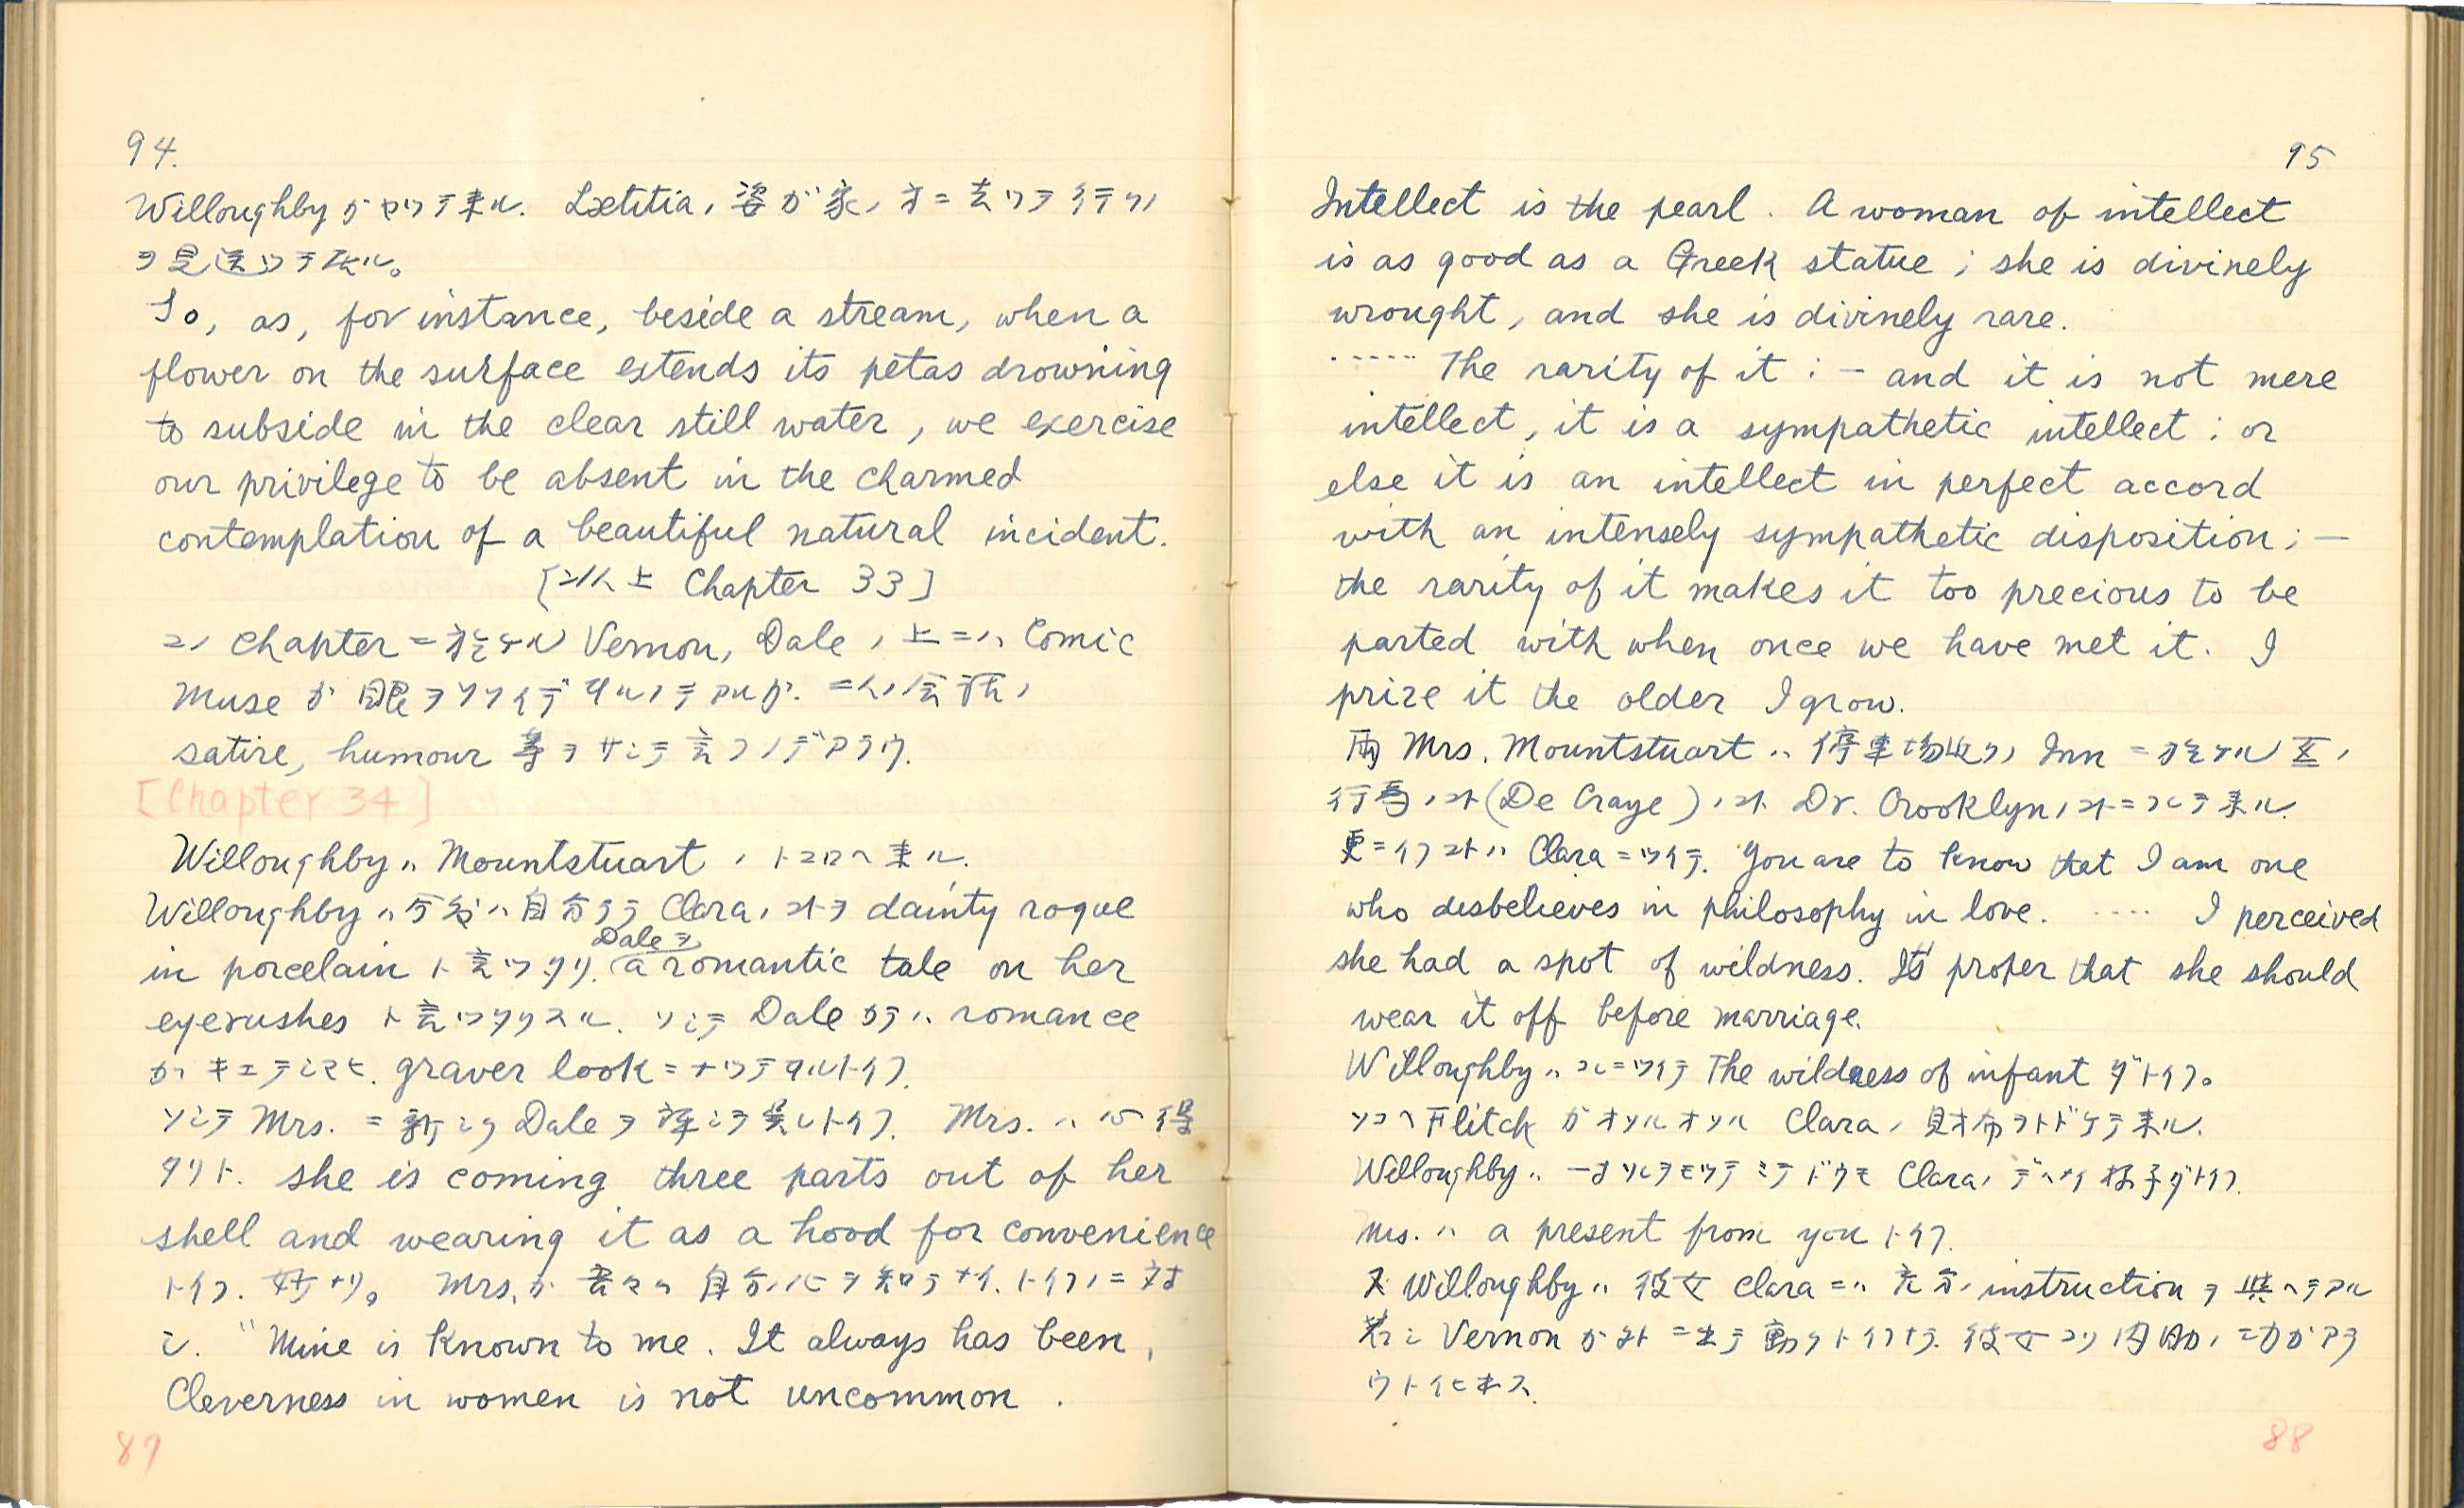 94.
Willoughby ガヤツテ来ル. Lætitia ノ姿ガ家ノ方ニ去ツテ行クノ
ヲ見送ツテ居ル。
So, as, for instance, beside a stream, when a
flower on the surface extends its petas drowning
to subside in the clear still water, we exercise
our privilege to be absent in the charmed
contemplation of a beautiful natural incident.
[以上 Chapter 33]
コノ chapter ニ於ケル Vernon, Dale ノ上ニハ Comic
Muse ガ眼ヲソソイデヰルノデアルガ. 二人ノ会話ノ
satire, humour 等ヲサシテ言フノデアラウ.
[Chapter 34]
Willoughby ハ Mountstuart ノトコロヘ来ル.
Willoughby ハ 自分 Clara ノコトヲ dainty rogue
Dale ヲ
in porcelain ト言ツタリ. a romantic tale on her
eyerushes ト言ツタリスル. ソシテ Dale カラハ romance
ガキエテシマヒ. graver look ニナツテヰルトイフ.
ソシテ Mrs. ニ新シク Dale ヲ探シテ呉レトイフ. Mrs. ハ心得
タリト. she is coming three parts out of her
shell and wearing it as a hood for convenience
トイフ. 妙ナリ。 Mrs. ガ 自分ノ心ヲ知ラナイ. トイフノニ対
シ. "Mine is known to me. It always has been,
Cleverness in women is not uncommon.
87
95
Intellect is the pearl. A woman of intellect
is as good as a Greek statue; she is divinely
wrought, and she is divinely rare.
..... The rarity of it: — and it is not mere
intellect, it is a sympathetic intellect: or
else it is an intellect in perfect accord
with an intensely sympathetic disposition; —
the rarity of it makes it too precious to be
parted with when once we have met it. I
prize it the older I grow.
Mrs. Mountstuart ハ 停車場 Inn ニ於ケル
行為ノコト (De Craye) ノコト Dr. Crooklyn ノコトニフレテ来ル.
更ニイフコトハ Clara ニツイテ. You are to know that I am one
who disbelieves in philosophy in love. .... I perceived
she had a spot of wildness. It's proper that she should
wear it off before marriage.
Willoughby ハコレニツイテ The wildness of infant ダトイフ。
ソコヘ Flitch ガオソルオソル Clara ノ財布ヲトドケテ来ル.
Willoughby ハ一寸ソレヲモツテミテドウモ Clara ノデハナイ様子ダトイフ.
Mrs. ハ a present from you トイフ.
又 Willoughby ハ 彼女 Clara ニハ充分ノ instruction ヲ与ヘテアル
若シ Vernon ガ外ニ出テ働クトイフナラ. 彼女コソ内助ノ功ガアラ
ウトイヒキス.
88